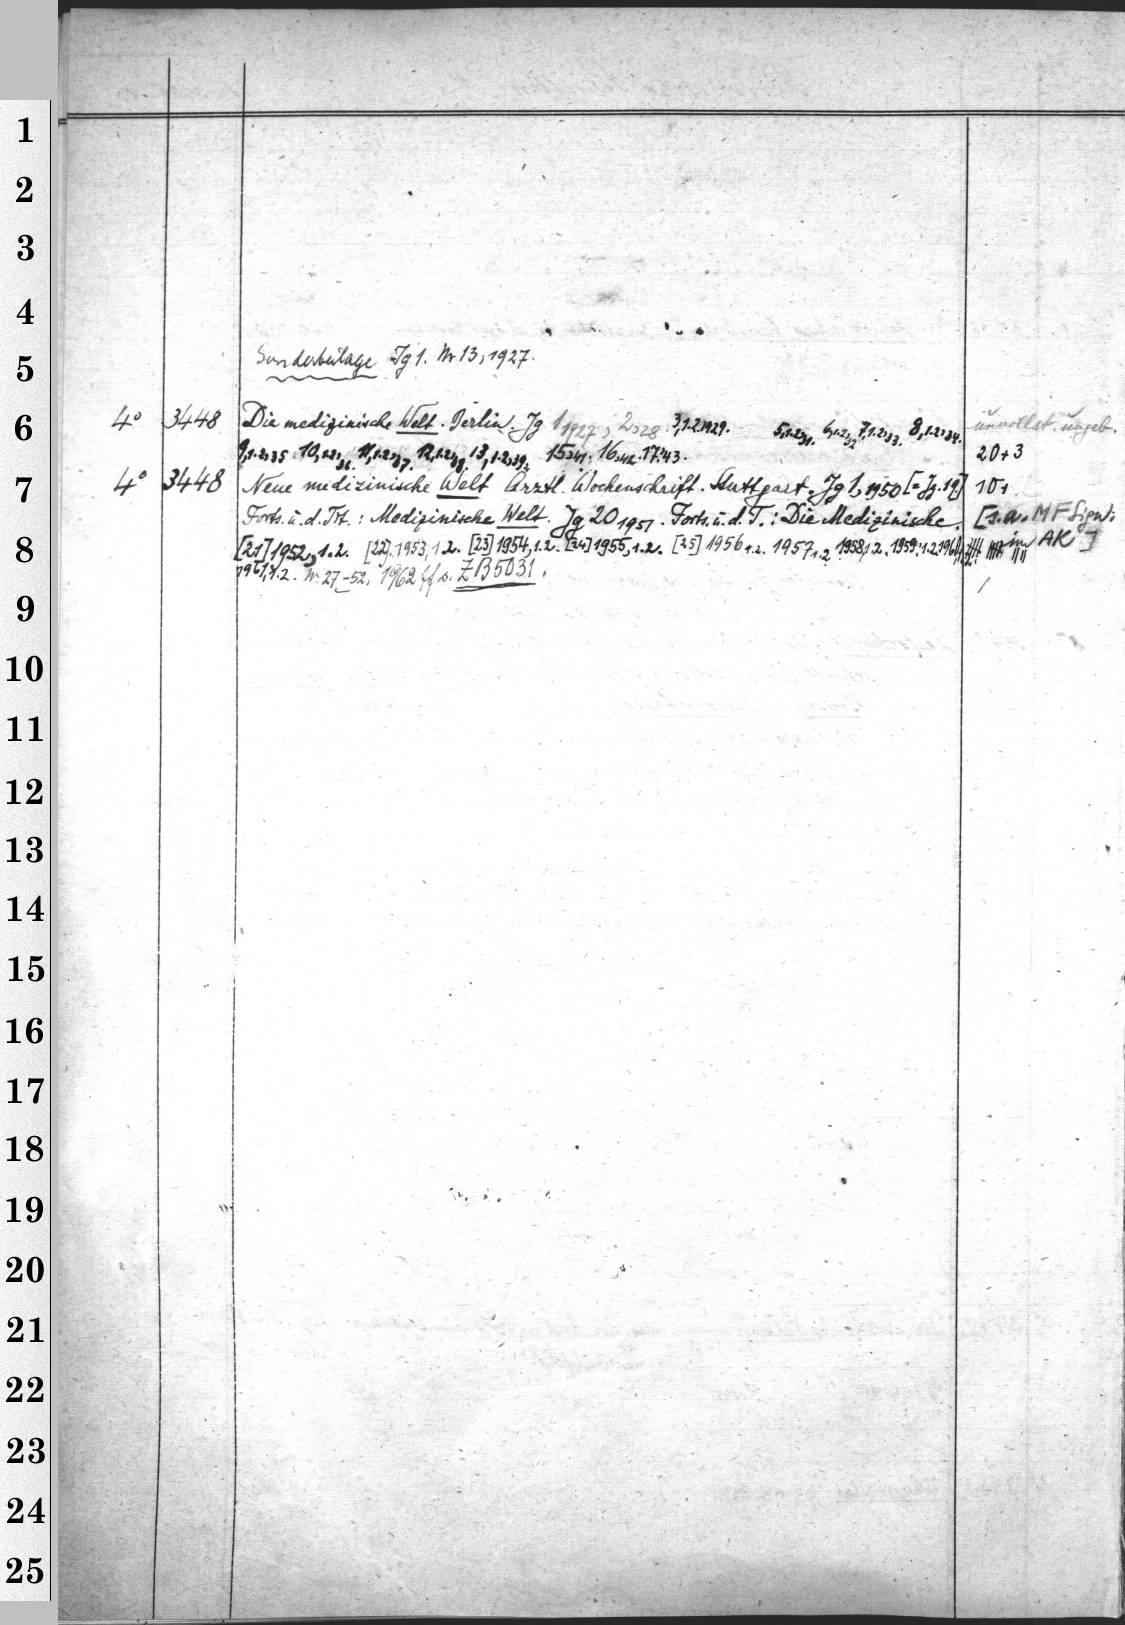 1
2
3
4
5
Sonderbeilage Jg 1. Nr 13, 1927.
6
4° 3448 Die medizinische Welt. Berlin. Jg 1 1927, 2, 28. 3,1.2.1929. 5,1.2,31. 6,1.2,32 7,1.2,33. 8,1.2,34. unvollst. ungeb.
9,1.2,35 10,1.2,36. 11,1.2,37. 12,1.2,38. 13,1.2,39. 15,41, 16,42. 17.43. 20+3
7
4° 3448 Neue medizinische Welt. Ärztl. Wochenschrift. Stuttgart. Jg 1, 1950 [= Jg. 19] 10+
Forts. u. d. Tit.: Medizinische Welt. Jg 20 1951. Forts. u. d. T.: Die Medizinische. [s.a. MF Signt.
8
[21] 1952, 1.2. [22] 1953, 1.2. [23] 1954, 1.2. [24] 1955, 1.2. [25] 1956 1.2. 1957 1.2 1958, 1.2. 1959, 1.2. 1960 in AK]
1961, 1.2. Nr. 27-52. 1962 ff s. ZB5031.
9
10
11
12
13
14
15
16
17
18
19
20
21
22
23
24
25